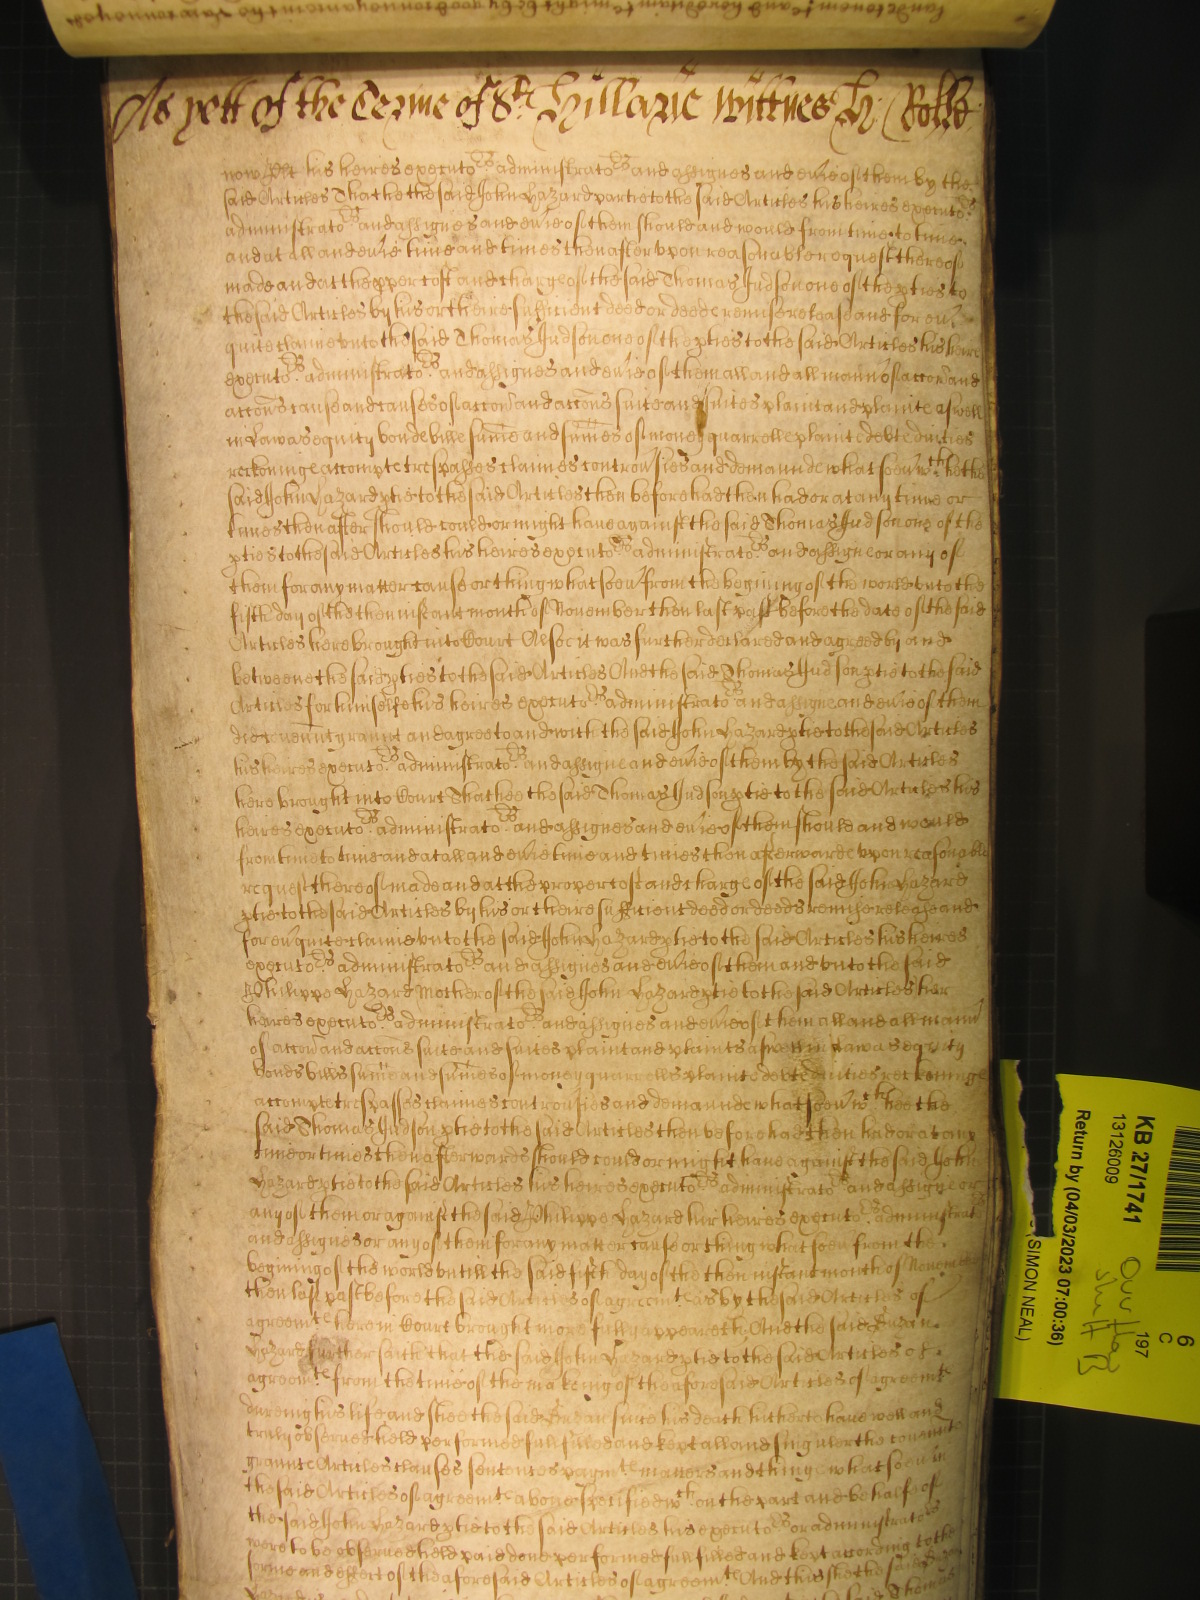 As yett of the Terme of St Hillarie Wittnes H: Rolle
now his heires executors administrators and assignes and evie of them by the
said Articles That he the said John Hazard partie to the said Articles his heires executors
administrators and assignes and evie of them should and would from time to time
and at all and evie time and times then after upon reasonable request thereof
made and at the pper cost and charge of the said Thomas Judson one of the pties to
the said Articles by his or theire sufficient deed or deede remise release and for ev
quite claime unto the said Thomas Judson one of the pties to the said Articles his heires
executors administrators and assignes and evie of them all and all mann of accon and
accons cause and causes of accon and accons suite and suites plaint and plainte aswell
in Law as equity bonde bille sume and sumes of money quarrelle plainte debte duties
reckoninge accompte trespasses claimes controvsies and demaunde whatsoev wch he the
said John Hazard ptie to the said Articles then before had then had or at any time or
times then after should could or might have against the said Thomas Judson one of the
pties to the said Articles his heires executors administrators and assigne or any of
them for any matter cause or thing whatsoev from the begining of the world unto the
fifth day of the then instant month of November then last past before the date of the said
Articles here brought into Court Also it was further declared and agreed by and
betweene the said pties to the said Articles And the said Thomas Judson ptie to the said
Articles for himselfe his heires executors administrators and assigne and evie of them
did covenant graunt and agree to and with the said John Hazard ptie to the said Articles
his heires executors administrators and assigne and evie of them by the said Articles
here brought into Court That hee the said Thomas Judson ptie to the said Articles his
heires executors administrators and assignes and evie of them should and would
from time to time and at all and evie time and times then afterwarde upon reasonable
request thereof made and at the proper cost and charge of the said John Hazard
ptie to the said Articles by his or theire sufficient deed or deeds remise release and
for ev quite claime unto the said John Hazard ptie to the said Articles his heires
executors administrators and assignes and evie of them and unto the said
Philippe Hazard Mother of the said John Hazard ptie to the said Articles her
heires executors administrators and assignes and evie of them all and all mann
of accon and accons suite and suites plaint and plaints aswell in Law as equity
bonds bills sume and sumes of money quarrells plainte debte duties reckoninge
accompte trespasses claimes controvsies and demaunde whatsoev wch hee the
said Thomas Judson ptie to the said Articles then before had then had or at any
time or times then afterwards should could or might have against the said John
Hazard ptie to the said Articles his heires executors administrators and assigne or
any of them or against the said Philippe Hazard hir heires executors administrators
and assignes or any of them for any matter cause or thing whatsoev from the
begining of the world untill the said fifth day of the then instant month of November
then last past before the said Articles of agreemte as by the said Articles of
agreemte here in Court brought more fully appeareth And the said Susan
Hazard further saith that the said John Hazard ptie to the said Articles of
agreemte from the time of the making of the aforesaid Articles of agreemte
dureing his life and shee the said Susan since his death hitherto have well and
truly observed held performed fulfilled and kept all and singuler the covenante
graunte Articles clauses sentences paymte matters and things whatsoev in
the said Articles of agreemte above specified wch on the part and behalfe of
the said John Hazard ptie to the said Articles his executors or administrators
were to be observed held paid done performed fulfilled and kept according to the
forme and effect of the aforesaid Articles of agreemte And this shee the said Susan
KB 27/1741
13126009
Return by (04/03/2023 07:00:36)
(SIMON NEAL)
6
C
197